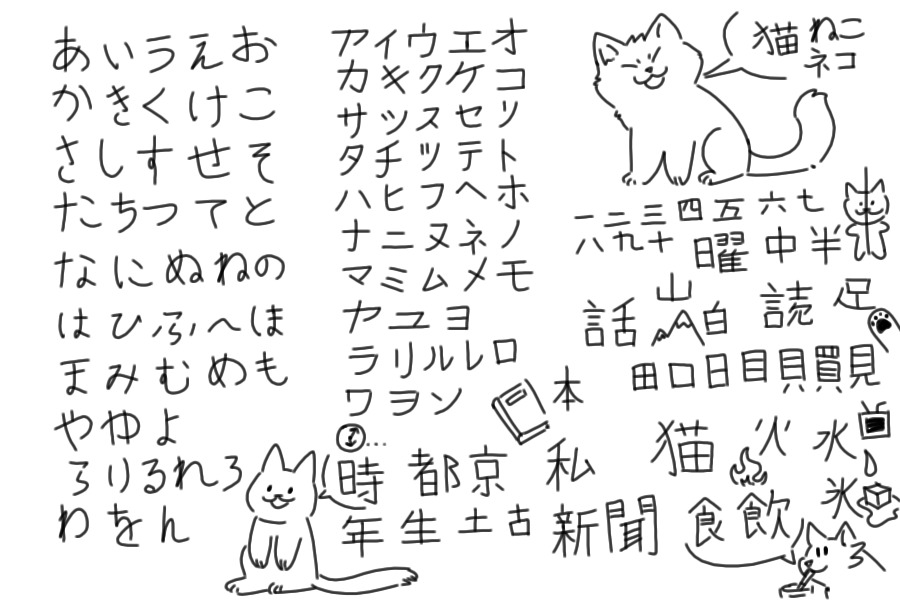 あいうえお
かきくけこ
さしすせそ
たちつてと
なにぬねの
はひふへほ
まみむめも
やゆよ
らりるれろ
わをん
アイウエオ
カキクケコ
サッスセソ
タチツテト
ハヒフヘホ
ナニヌネノ
マミムメモ
ヤユヨ
ラリルレロ
ワヨン
猫 ねこ
ネコ
一二三四五六七
八九十 日曜 中半
話 山 白 読 足
田口日目貝買見
本
時 都京 私 猫 火 水
年生土古 新聞 食飲 氷